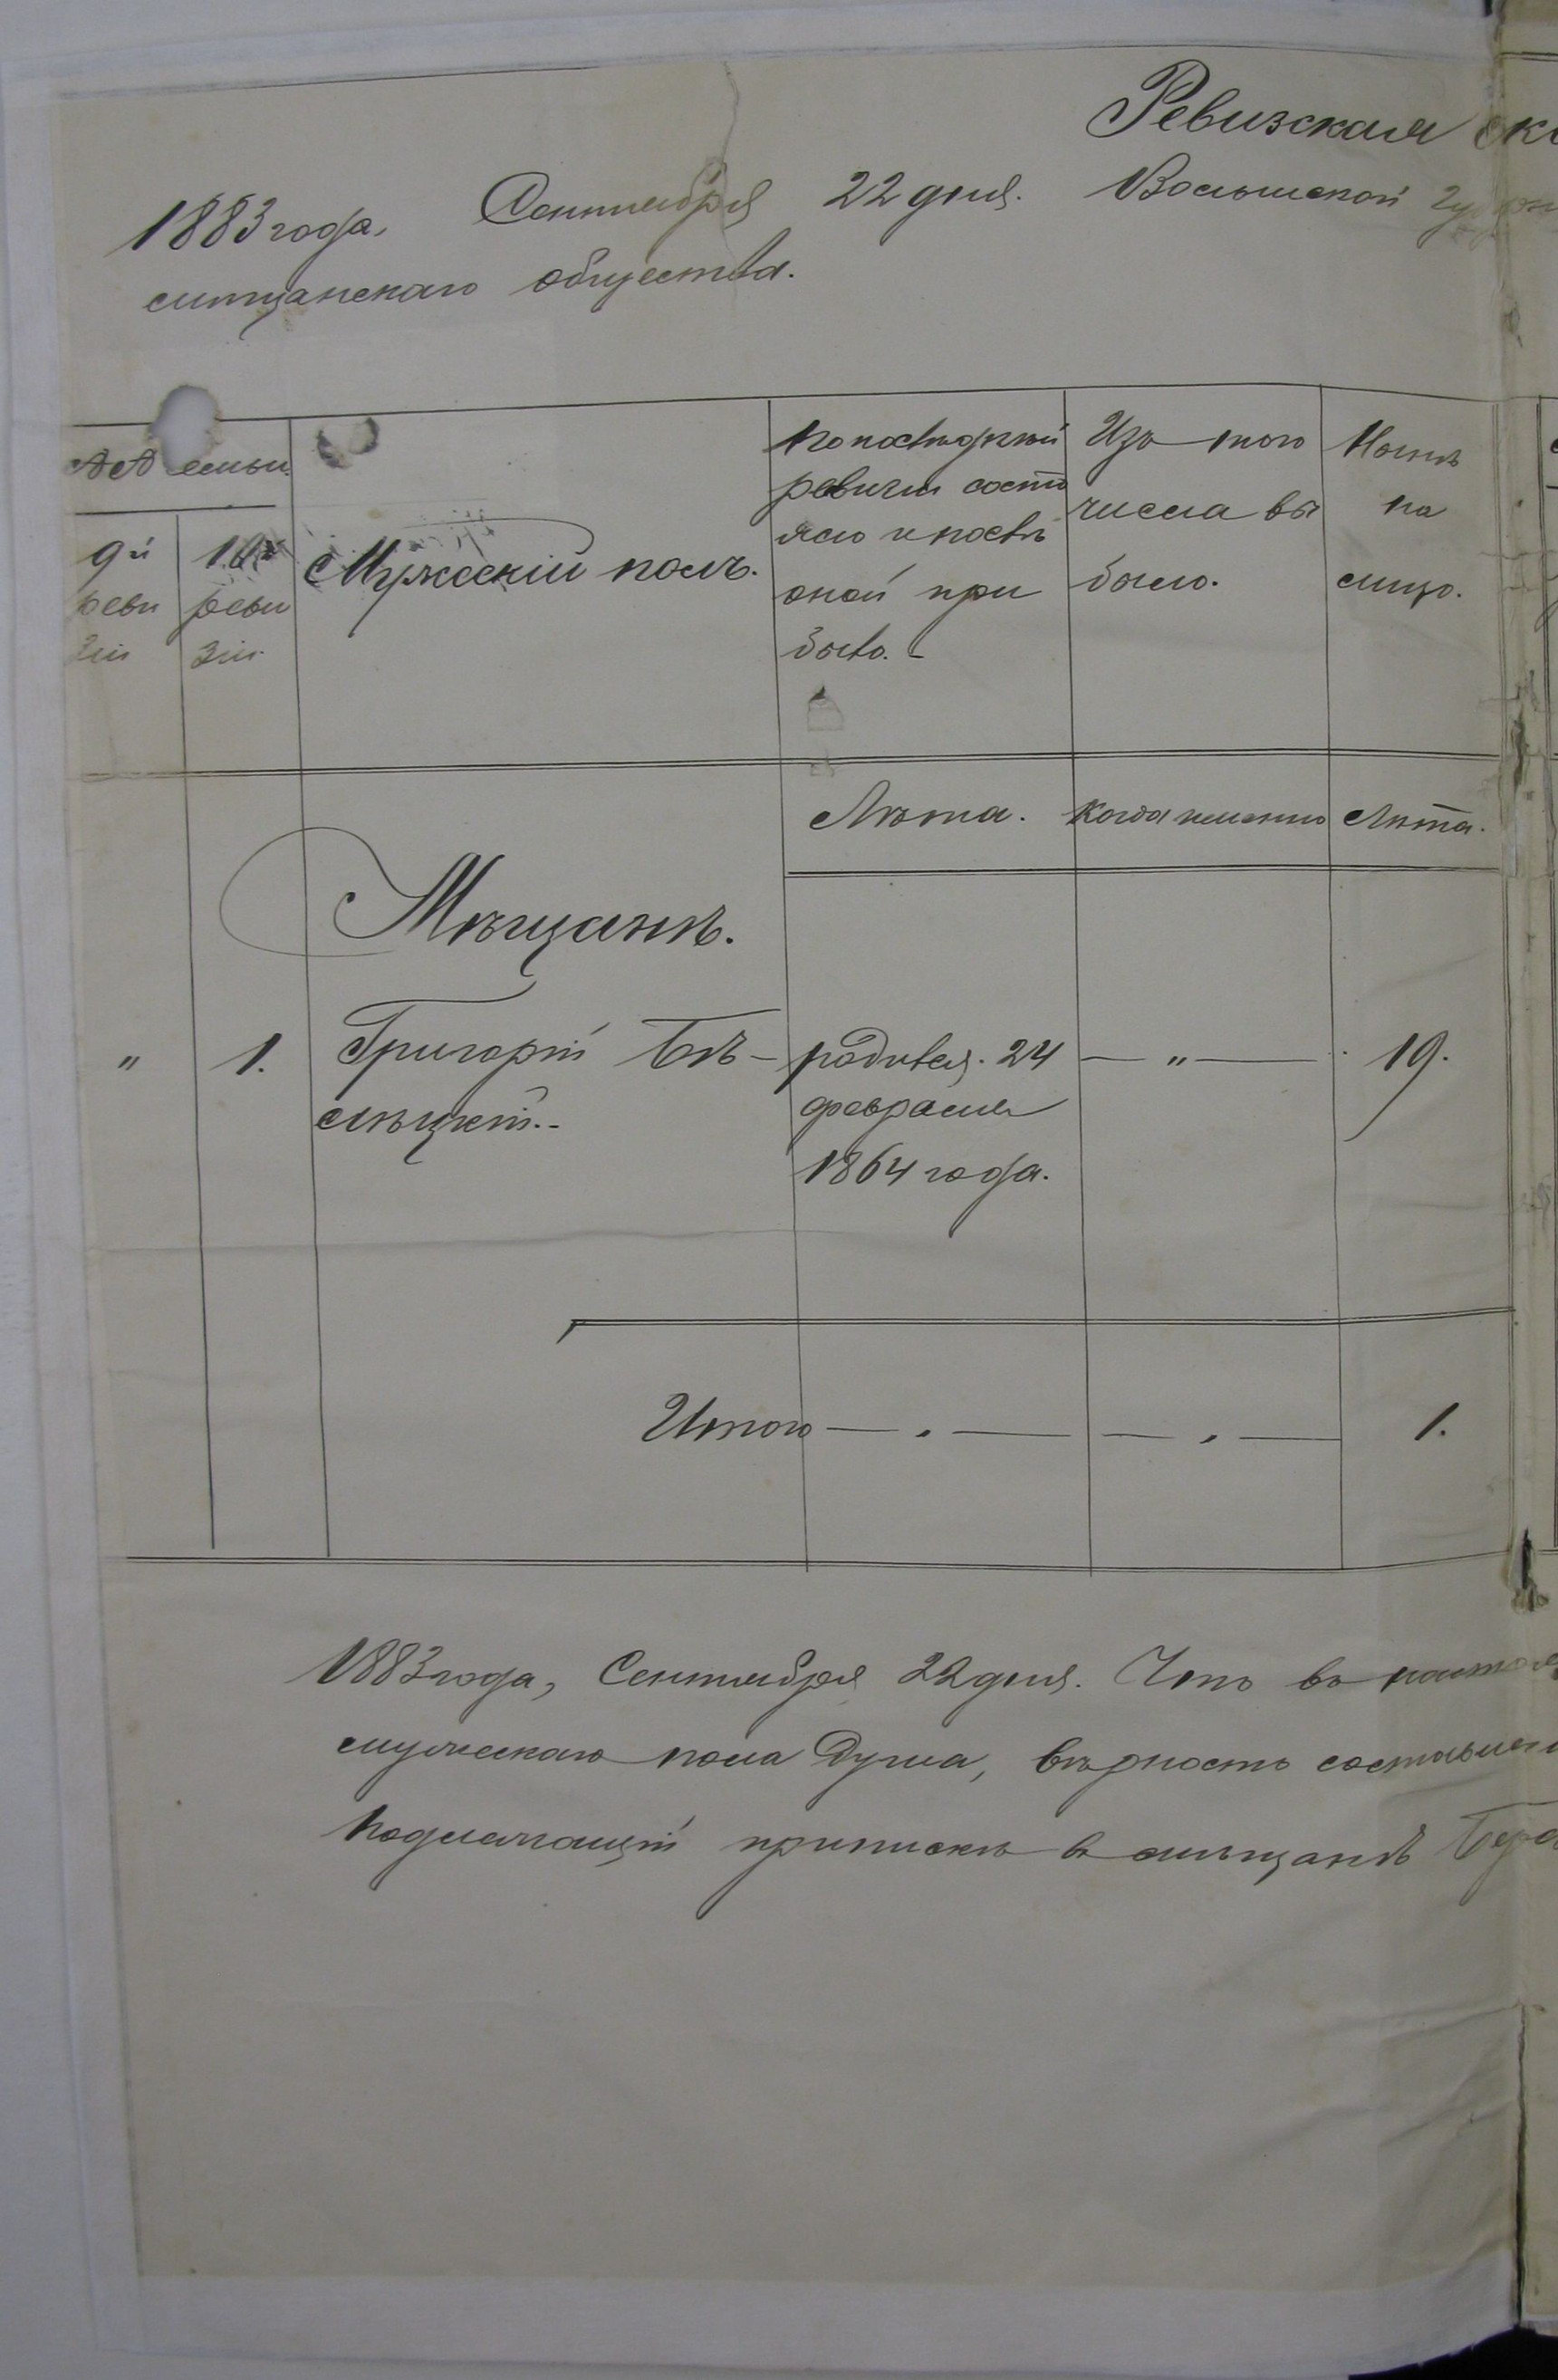 Ревизская
1883 года, Сентября 22 дня. Волынской
мѣщанскаго общества.
№№ семьи.
9й реви зіи
10й реви зіи
Мужескій полъ.
По послѣдней ревизіи состо яло и послѣ оной при было.
Изъ того числа вы было.
Нынѣ на лицо.
Лѣта. Когда именно Лѣта.
Мѣщанѣ.
" 1. Григорій Бѣ- родился 24 — " — 19.
лѣцкій.- февраля
1864 года.
Итого — " — — " — 1.
1883 года, Сентября 22 дня. Что въ
мужескаго пола душа, вѣрность
подлежащій припискѣ в мѣщанѣ